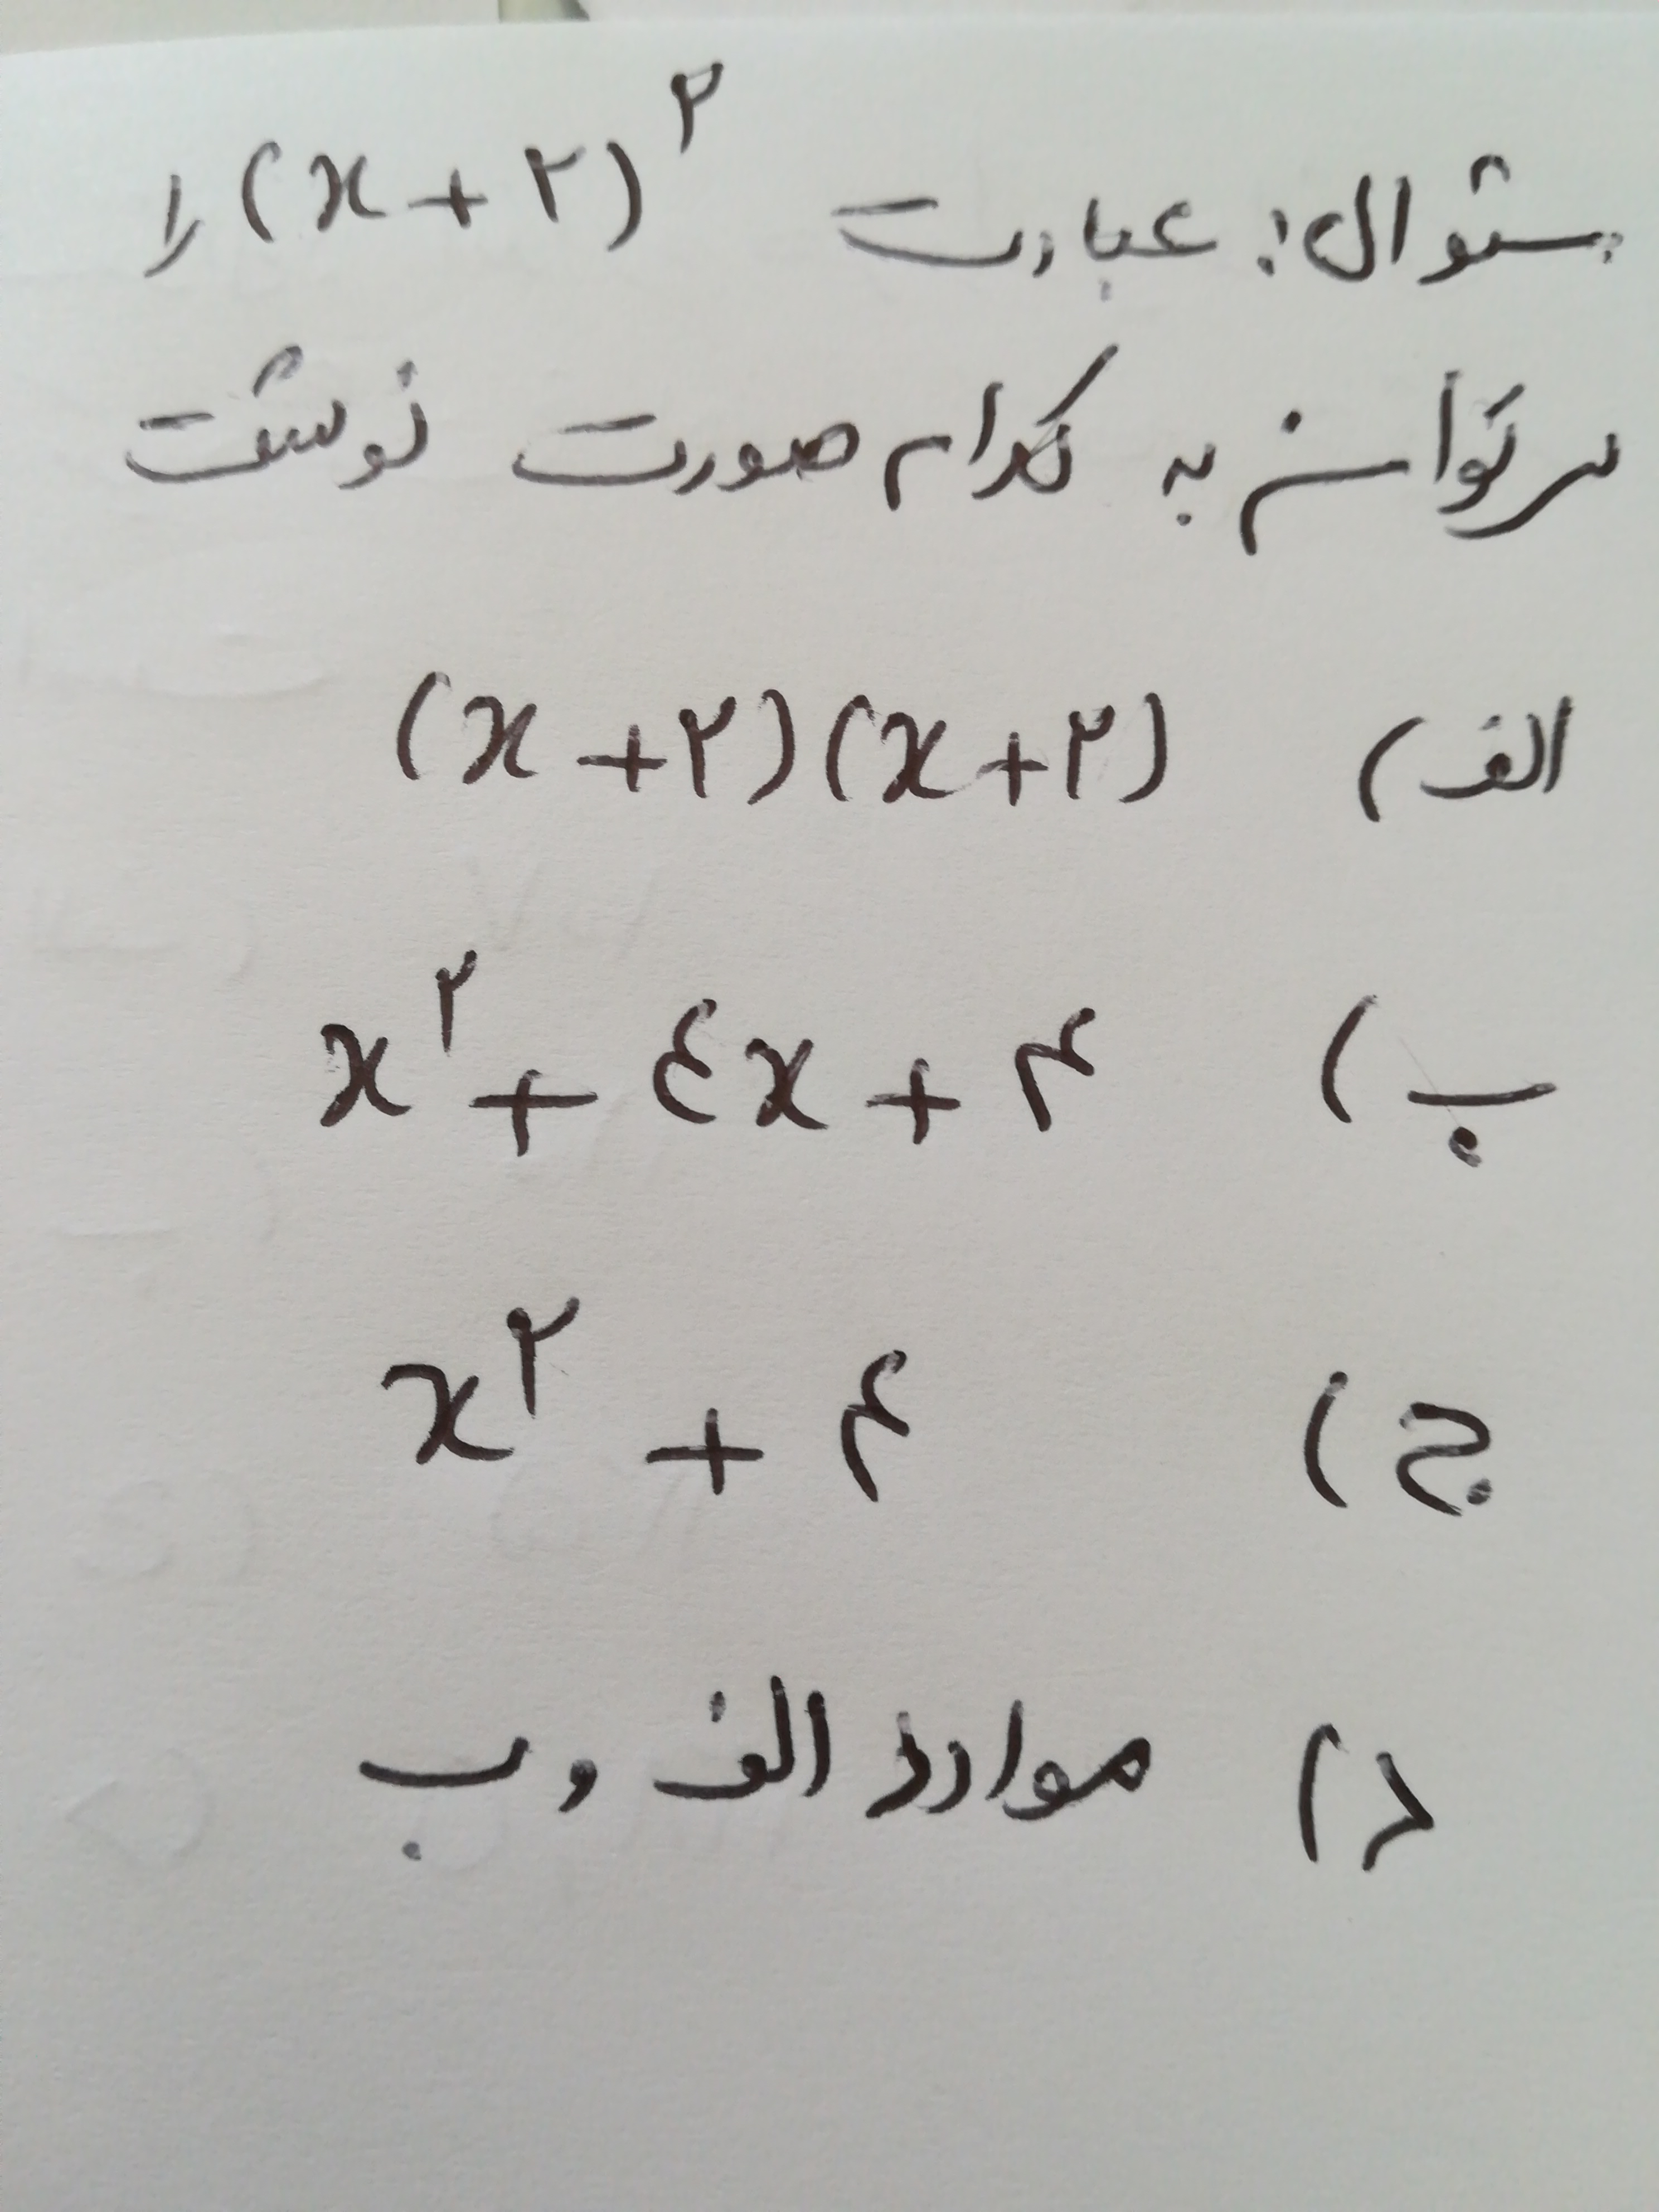 سئوال: عبارت (x + ۲)^۲ را
می توان به کدام صورت نوشت
الف) (x + ۲)(x + ۲)
ب) x^۲ + ۴x + ۴
ج) x^۲ + ۴
د) موارد الف و ب